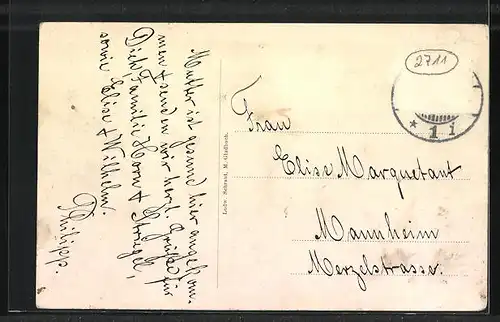 Mutter ist gesund hier angekom-
men & senden wir herzl. Grüße für
Dich, Familie Horn & Striegel,
sowie Elise & Wilhelm.
Philipp.
Ludw. Schraut, M.-Gladbach.
2711
* 1 i
Frau
Elise Marquetant
Mannheim
Merzelstrasse.